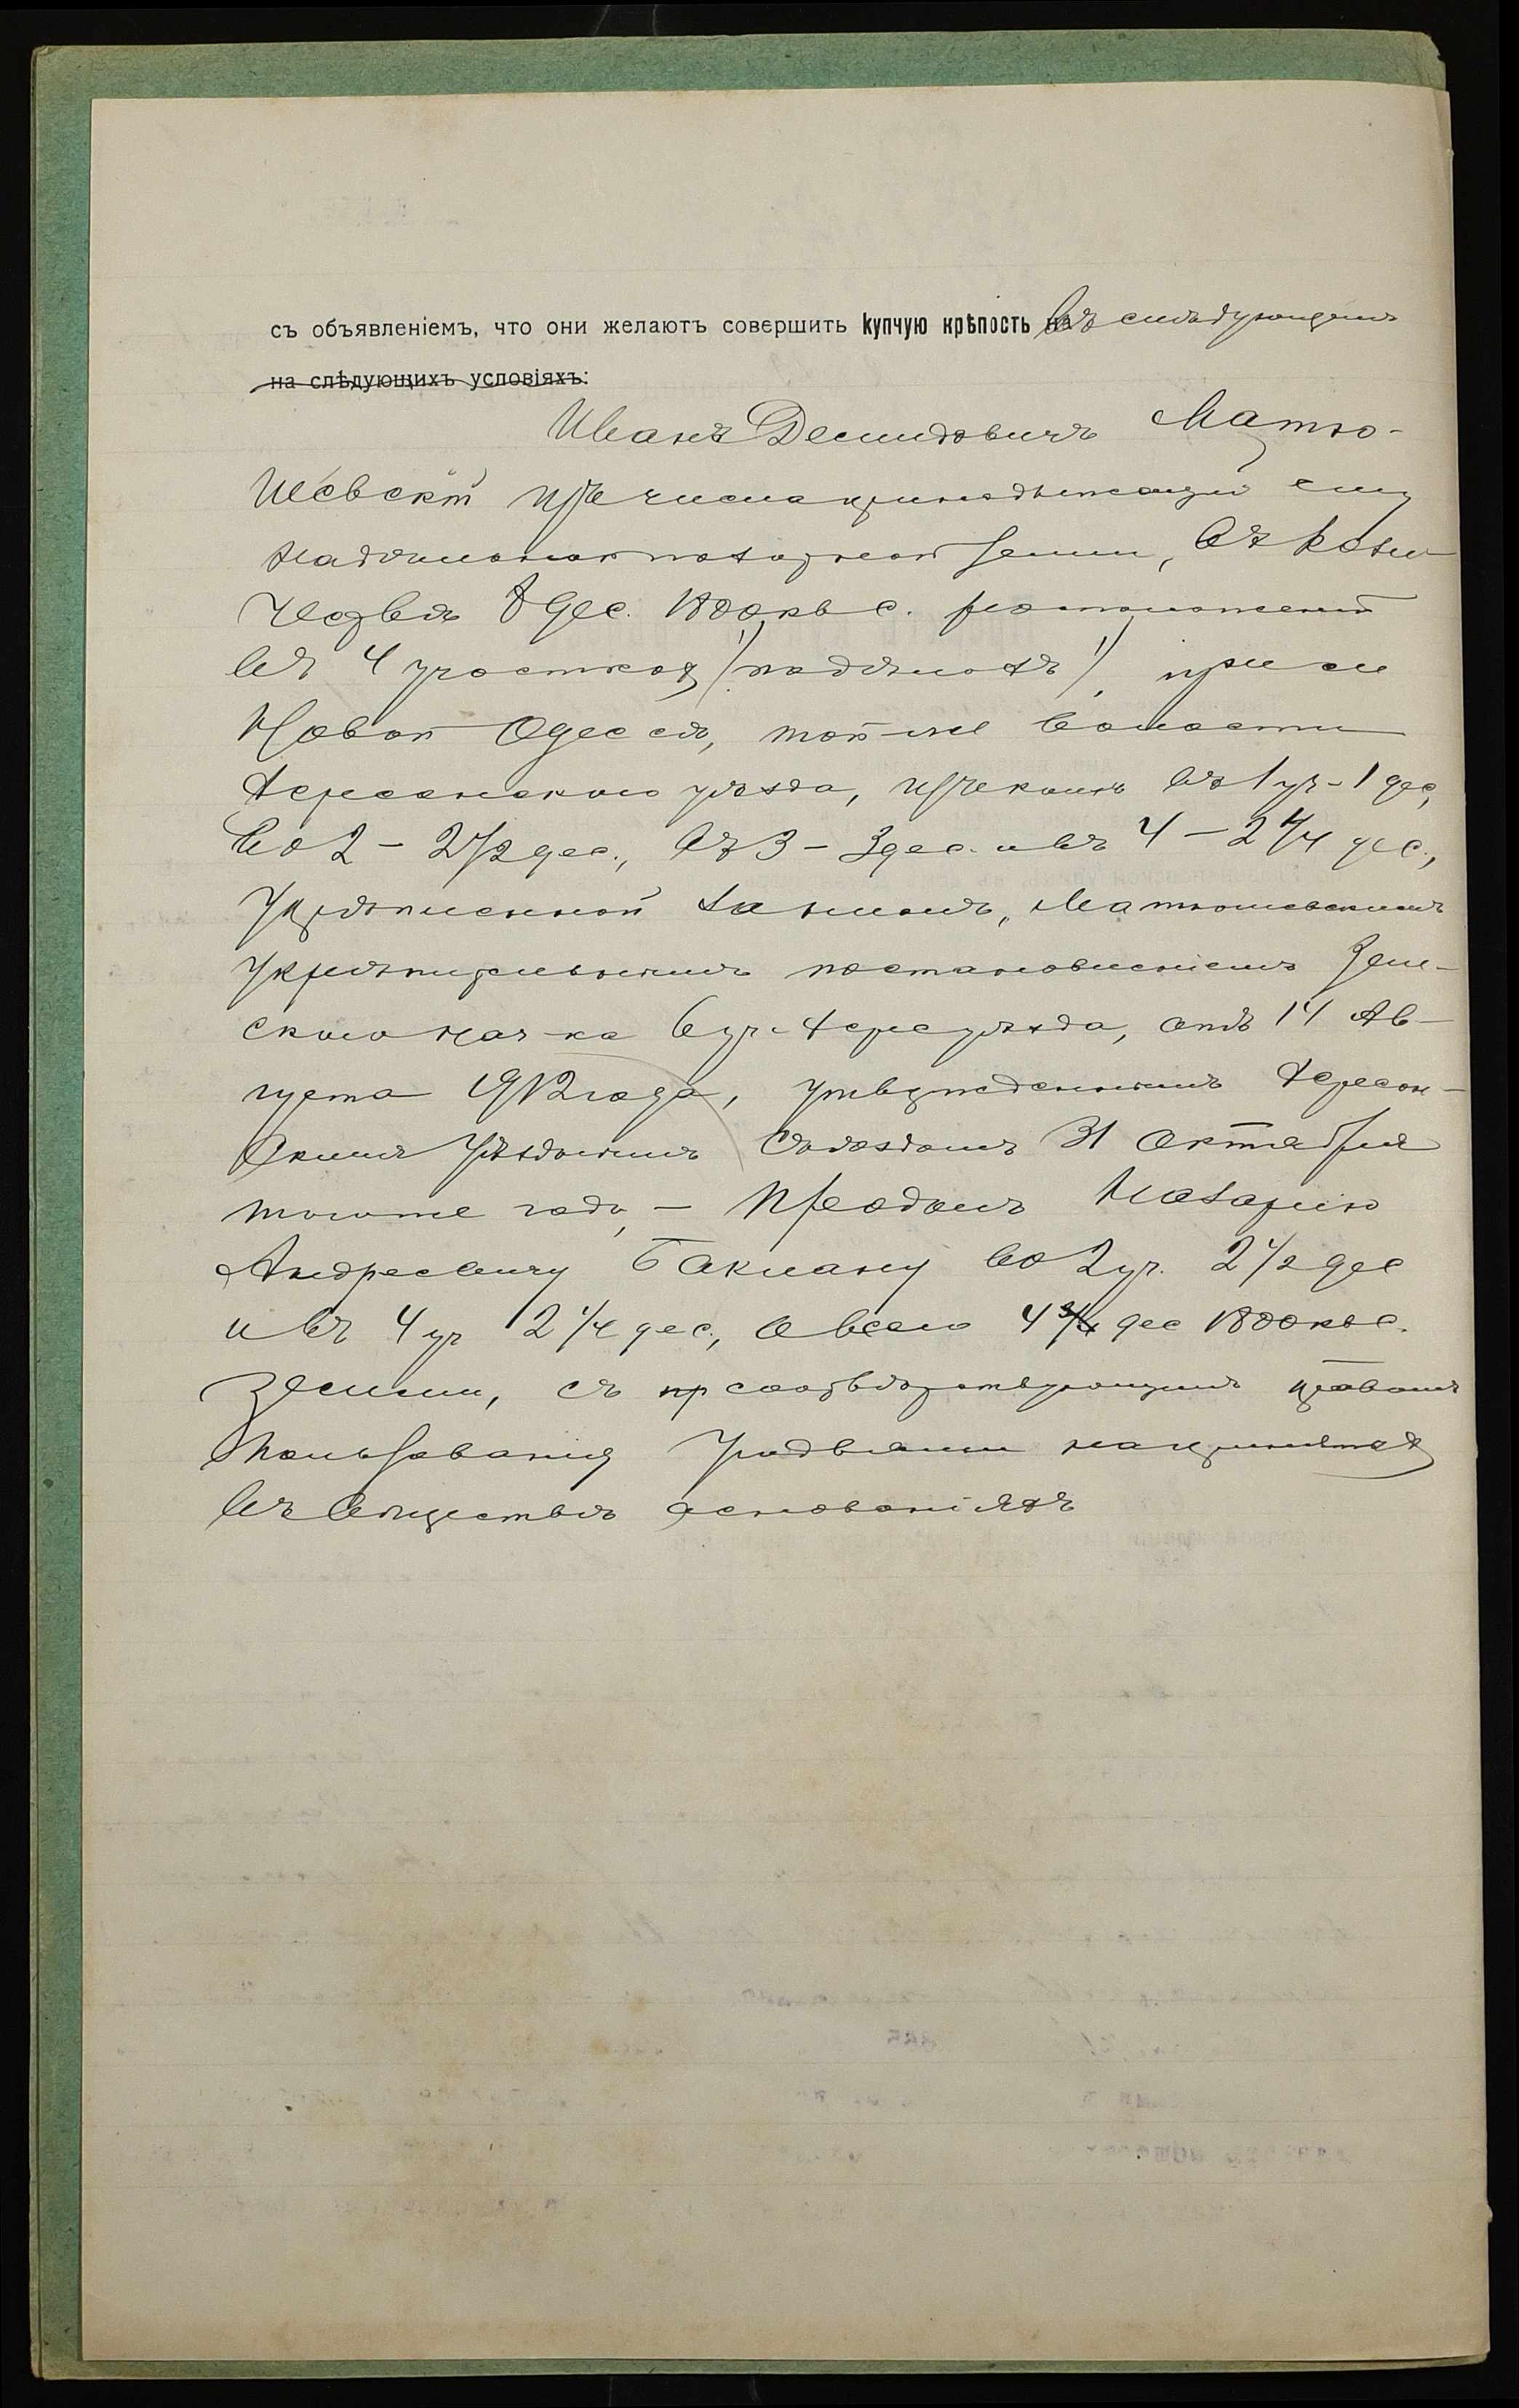 съ объявленіемъ, что они желаютъ совершить купчую крѣпость на въ слѣдующемъ
на слѣдующихъ условіяхъ:
Иванъ Демидовичъ Матю-
шевскій изъ числа принадлежащей ему
надѣльной пахотной земли, въ коли
чествѣ 8 дес. 1800 кв с. расположенной
въ 4 участкахъ (надѣлахъ), при се
Новой Одессѣ, той-же волости
Херсонскаго уѣзда, изъ коихъ въ 1 уч - 1 дес,
во 2 - 2 1/2 дес., въ 3 - 3 дес. и въ 4 - 2 1/4 дес.,
укрѣпленной за нимъ, Матюшевскимъ
укрѣпительнымъ постановленіемъ Зем-
скаго нач-ка 6 уч. Херс уѣзда, отъ 14 Ав-
густа 1912 года, утвержденнымъ Херсон-
скимъ Уѣзднымъ Съѣздомъ 31 Октября
того же года, - продалъ Назарію
Андреевичу Баклану во 2 уч. 2 1/2 дес
и въ 4 уч 2 1/4 дес., а всего 4 3/4 дес 1800 кв с.
земли, съ пр соотвѣтствующимъ правомъ
пользованія угодьями на принятыхъ
въ обществѣ основаніяхъ